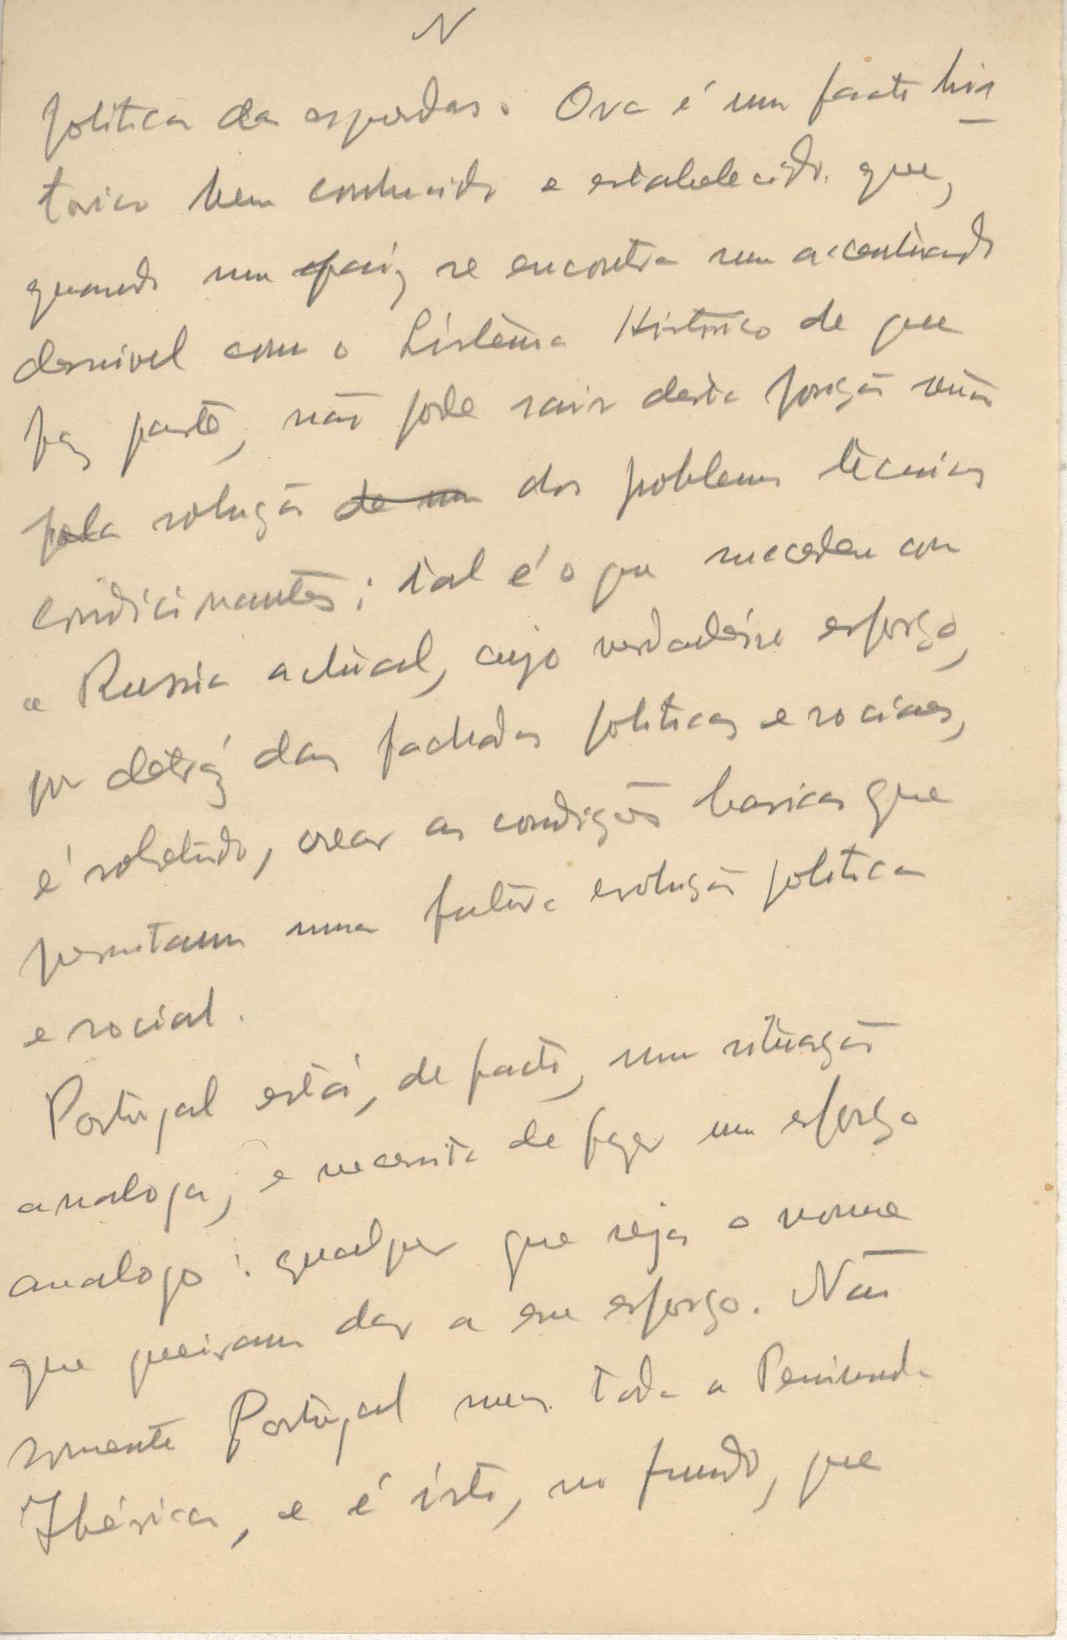 N
politica da esquerdas. Ora é um facto his
torico bem conhecido e estabelecido que,
quando um paiz se encontra num accentuado
desnivel com o Sistema Historico de que
faz parte, não pode sair desta posição senão
pela solução de um dos problemas tecnicos
condicionantes; tal é o que succedeu com
a Russia actual, cujo verdadeiro esforço,
por detraz das fachadas politicas e sociaes,
é sobretudo, crear as condições basicas que
permitam uma futura evolução politica
e social.
Portugal está, de facto, numa situação
analoga, e necessita de fazer um esforço
analogo: qualquer que seja o nome
que queiram dar a esse esforço. Não
somente Portugal mas toda a Peninsula
Ibérica, e é isto, no fundo, que